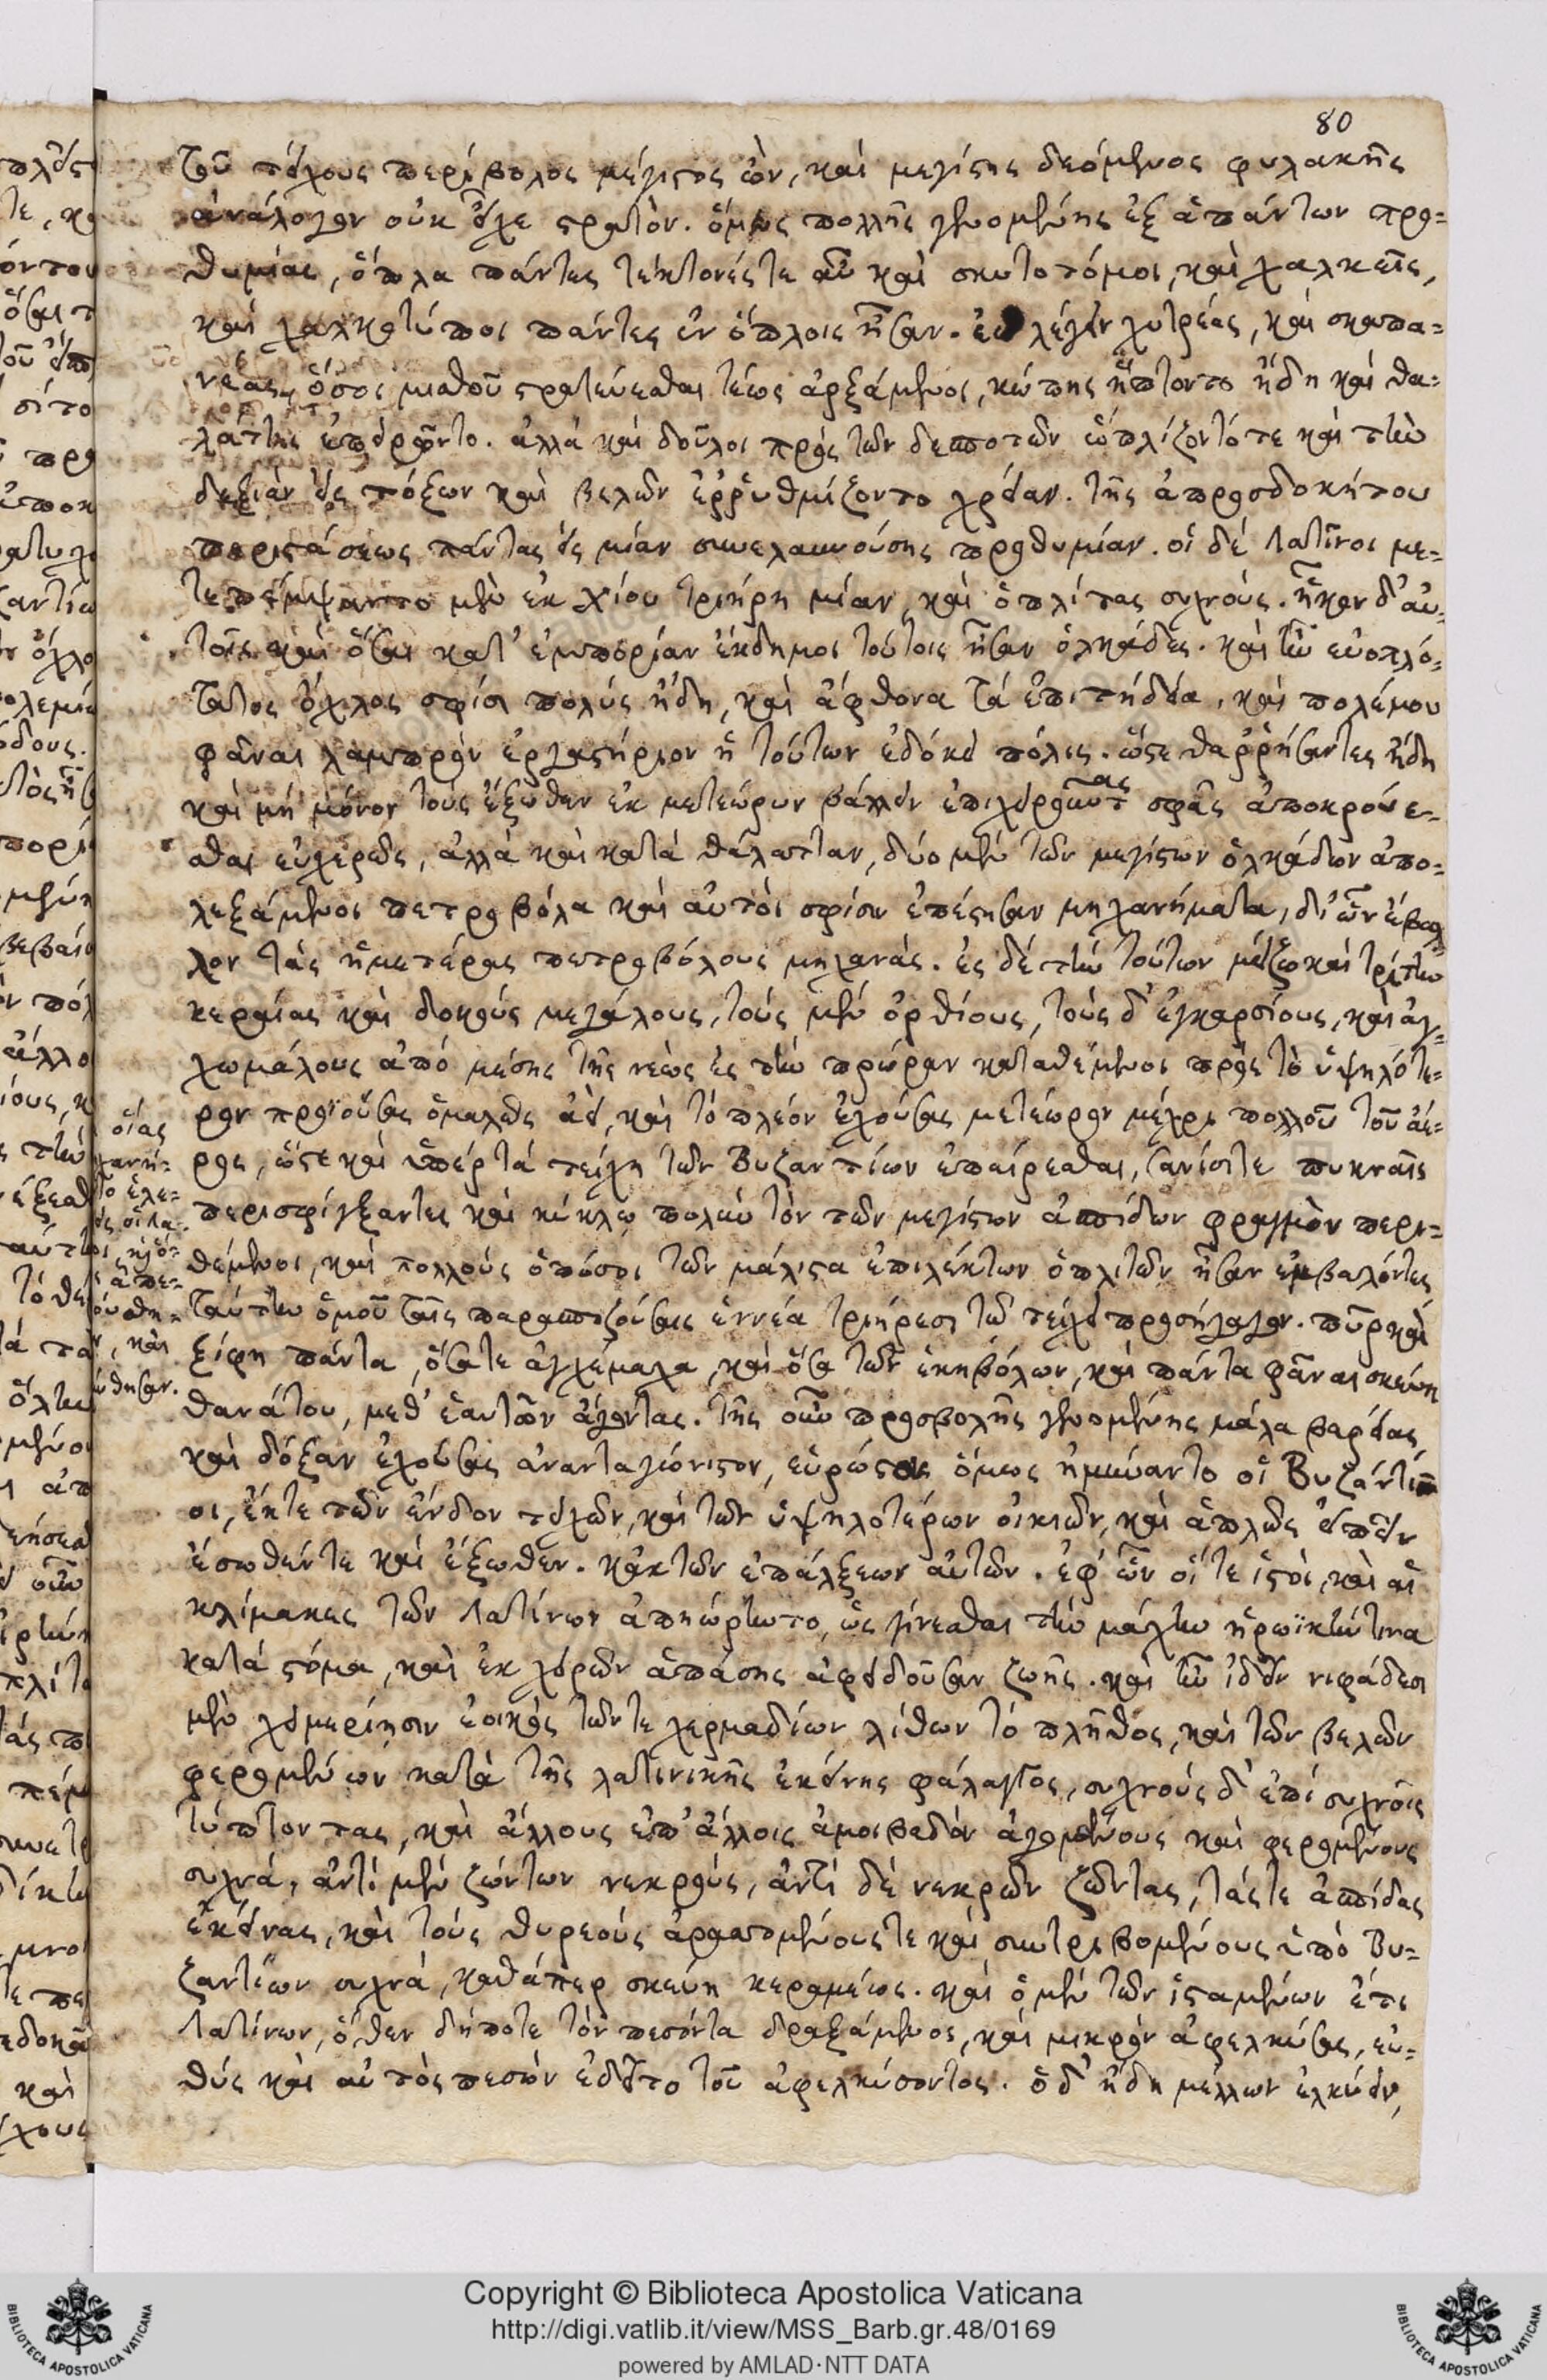 80
τοῦ τείχους περίβολος μέγιστος ὢν, καὶ μεγίστης δεόμενος φυλακῆς
ἀνάλογον οὐκ εἶχε στρατόν. ὅμως πολλῆς γενομένης ἐξ ἁπάντων προ=
θυμίας, ὅπλα πάντες τέκτονές τε αὖ καὶ σκυτοτόμοι, καὶ χαλκεῖς,
καὶ χαλκοτύποι πάντες ἐν ὅπλοις ἦσαν. ἐῶ λέγειν χυτρέας, καὶ σκαπα=
νέας, ὅσοι μισθοῦ στρατεύεσθαι τέως ἀρξάμενοι, κώπης ἥπτοντο ἤδη καὶ θα=
λάττης ἐπειρῶντο. ἀλλὰ καὶ δοῦλοι πρὸς τῶν δεσποτῶν ὡπλίζοντό τε καὶ τὴν
δεξιὰν εἰς τόξων καὶ βελῶν ἐῤῥυθμίζοντο χρείαν. τῆς ἀπροσδοκήτου
περιστάσεως πάντας εἰς μίαν συνελαυνούσης προθυμίαν. οἱ δὲ λατῖνοι με=
τεπέμψαντο μὲν ἐκ χίου τριήρη μίαν, καὶ ὁπλίτας συχνούς. ἧκον δ' αὐ=
τοῖς καὶ ὅσαι κατ' ἐμπορίαν ἔκδημοι τούτοις ἦσαν ὁλκάδες. καὶ ἦν εὐοπλό=
τατος ὄχλος σφίσι πολὺς ἤδη, καὶ ἄφθονα τὰ ἐπιτήδεια, καὶ πολέμου
φᾶναι λαμπρὸν ἐργαστήριον ἡ τούτων ἐδόκει πόλις. ὥστε θαῤῥήσαντες ἤδη
καὶ μὴ μόνον τοὺς ἔξωθεν ἐκ μετεώρων βάλλειν ἐπιχειροῦντας σφᾶς ἀποκρούε=
σθαι εὐχερῶς, ἀλλὰ καὶ κατὰ θάλατταν, δύο μὲν τῶν μεγίστων ὁλκάδων ἀπο=
λεξάμενοι πετροβόλα καὶ αὐτοὶ σφίσιν ἐπέστησαν μηχανήματα, δι' ὧν ἔβαλ
λον τὰς ἡμετέρας πετροβόλους μηχανάς. ἐς δὲ τὴν τούτων μείζω καὶ τρίτην
κεραίας καὶ δοκοὺς μεγάλους, τοὺς μὲν ὀρθίους, τοὺς δ' ἐγκαρσίους, καὶ ἀγ=
χωμάλους ἀπὸ μέσης τῆς νεὼς ἐς τὴν πρώραν καταθέμενοι πρὸς τὸ ὑψηλότε=
ρον προϊούσας ὁμαλῶς ἀεὶ, καὶ τὸ πλέον ἐχούσας μετέωρον μέχρι πολλοῦ τοῦ ἀέ=
ρος, ὥστε καὶ ὑπὲρ τὰ τείχη τῶν Βυζαντίων ἐπαίρεσθαι, σανίσι τε πυκναῖς
περισφίγξαντες καὶ κύκλῳ πολὺν τὸν τῶν μεγίστων ἀσπίδων φραγμὸν περι=
θέμενοι, καὶ πολλοὺς ὁπόσοι τῶν μάλιστα ἐπιλέκτων ὁπλιτῶν ἦσαν ἐμβαλόντες
ταύτην ὁμοῦ ταῖς παρασπιζούσαις ἐννέα τριήρεσι τῷ τείχει προσήγαγον. πῦρ καὶ
ξίφη πάντα, ὅσα τε ἀγχέμαχα, καὶ ὅσα τῶν ἑκηβόλων, καὶ πάντα φᾶναι σκεύη
θανάτου, μεθ' ἑαυτῶν ἄγοντας. τῆς οὖν προσβολῆς γενομένης μάλα βαρείας,
καὶ δόξαν ἐχούσης ἀνανταγώνιστον, εὐρώστως ὅμως ἠμύναντο οἱ Βυζάντι
οι, ἔκ τε τῶν ἔνδον τειχῶν, καὶ τῶν ὑψηλοτέρων οἰκιῶν, καὶ ἁπλῶς εἰπεῖν
ἔσωθέν τε καὶ ἔξωθεν. κἀκ τῶν ἐπάλξεων αὐτῶν. ἐφ' ὧν οἵ τε ἱστοὶ, καὶ αἱ
κλίμακες τῶν λατίνων ἀπηώρηντο, ὡς γίνεσθαι τὴν μάχην ἡρωϊκήν τινα
κατὰ στόμα, καὶ ἐκ χειρῶν ἁπάσης ἀφειδοῦσαν ζωῆς. καὶ ἦν ἰδεῖν νιφάδεσι
μὲν χειμερίησιν ἐοικὸς τῶν τε χερμαδίων λίθων τὸ πλῆθος, καὶ τῶν βελῶν
φερομένων κατὰ τῆς λατινικῆς ἐκείνης φάλαγγος, συχνοὺς δ' ἐπὶ συχνοῖς
τύπτοντας, καὶ ἄλλους ἐπ' ἄλλοις ἀμοιβαδὸν ἀγομένους καὶ φερομένους
συχνά, ἀντὶ μὲν ζώντων νεκροὺς, ἀντὶ δὲ νεκρῶν ζῶντας, τάς τε ἀσπίδας
ἐκείνας, καὶ τοὺς θυρεοὺς ἀρασσομένους τε καὶ συντριβομένους ὑπὸ Βυ=
ζαντίων συχνά, καθάπερ σκεύη κεραμέως. καὶ ὁ μὲν τῶν ἱσταμένων ἔτι
λατίνων, ὅθεν δήποτε τὸν πεσόντα δραξάμενος, καὶ μικρὸν ἀφελκύσας, εὐ=
θὺς καὶ αὐτὸς πεσὼν ἐδεῖτο τοῦ ἀφελκύσοντος. ὁ δ' ἤδη μέλλων ἑλκύειν,
Copyright © Biblioteca Apostolica Vaticana
http://digi.vatlib.it/view/MSS_Barb.gr.48/0169
powered by AMLAD·NTT DATA
BIBLIOTECA APOSTOLICA VATICANA
BIBLIOTECA APOSTOLICA VATICANA